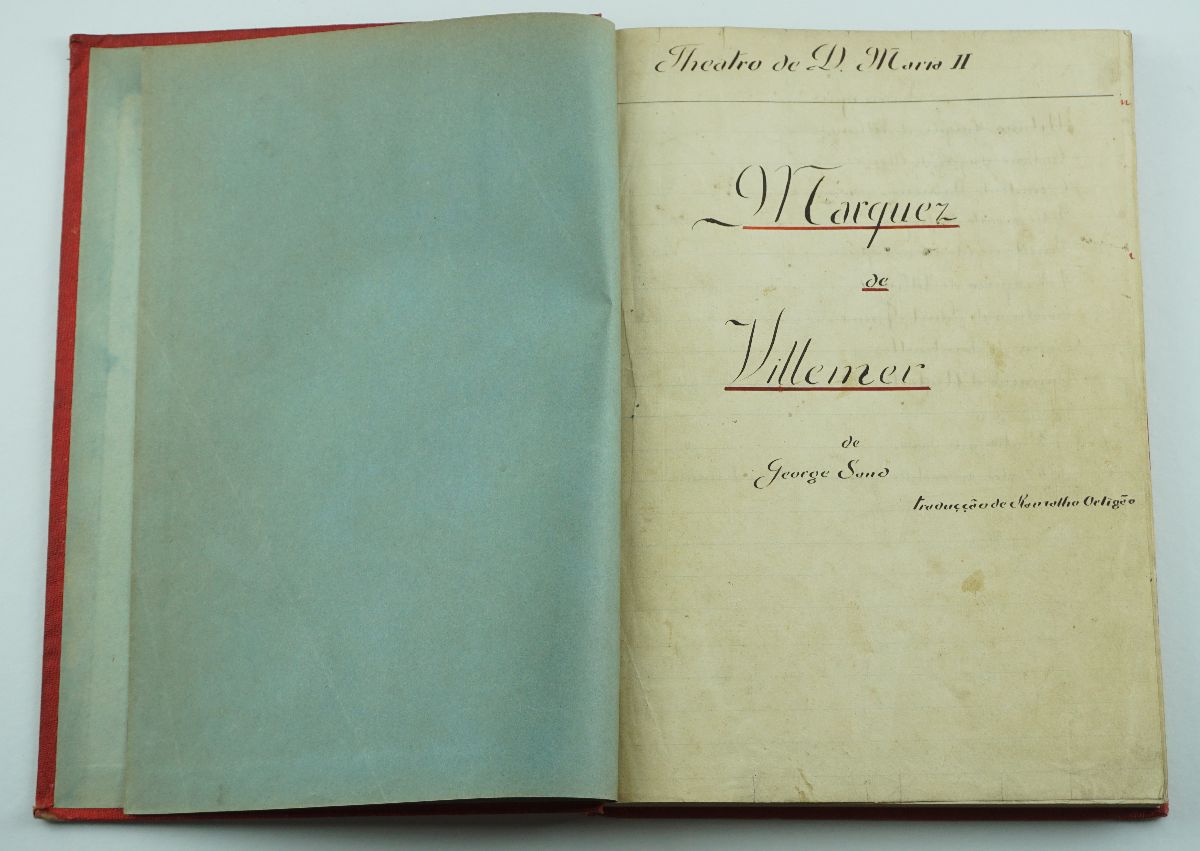 Theatro de D. Maria II
Marquez
de
Villemer
de
George Sand
traducção de Ramalho Ortigão